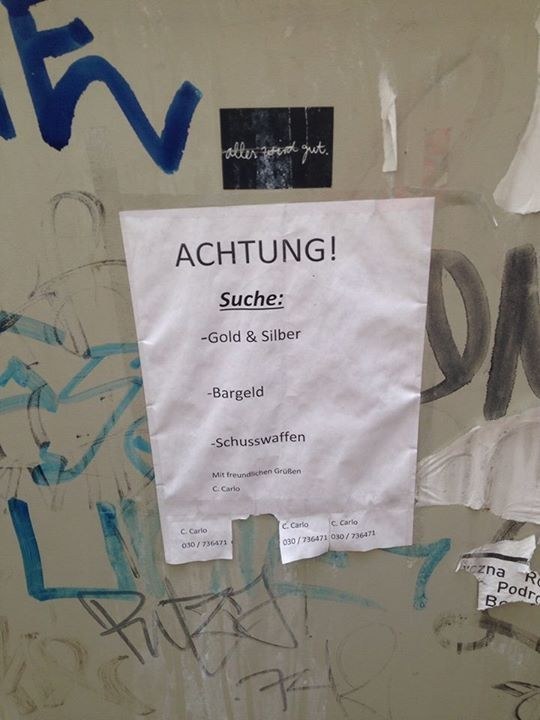 alles wird gut.
ACHTUNG!
Suche:
-Gold & Silber
-Bargeld
-Schusswaffen
Mit freundlichen Grüßen
C. Carlo
C. Carlo
030 / 736471
C. Carlo
030 / 736471
C. Carlo
030 / 736471
czna R
Podr
B